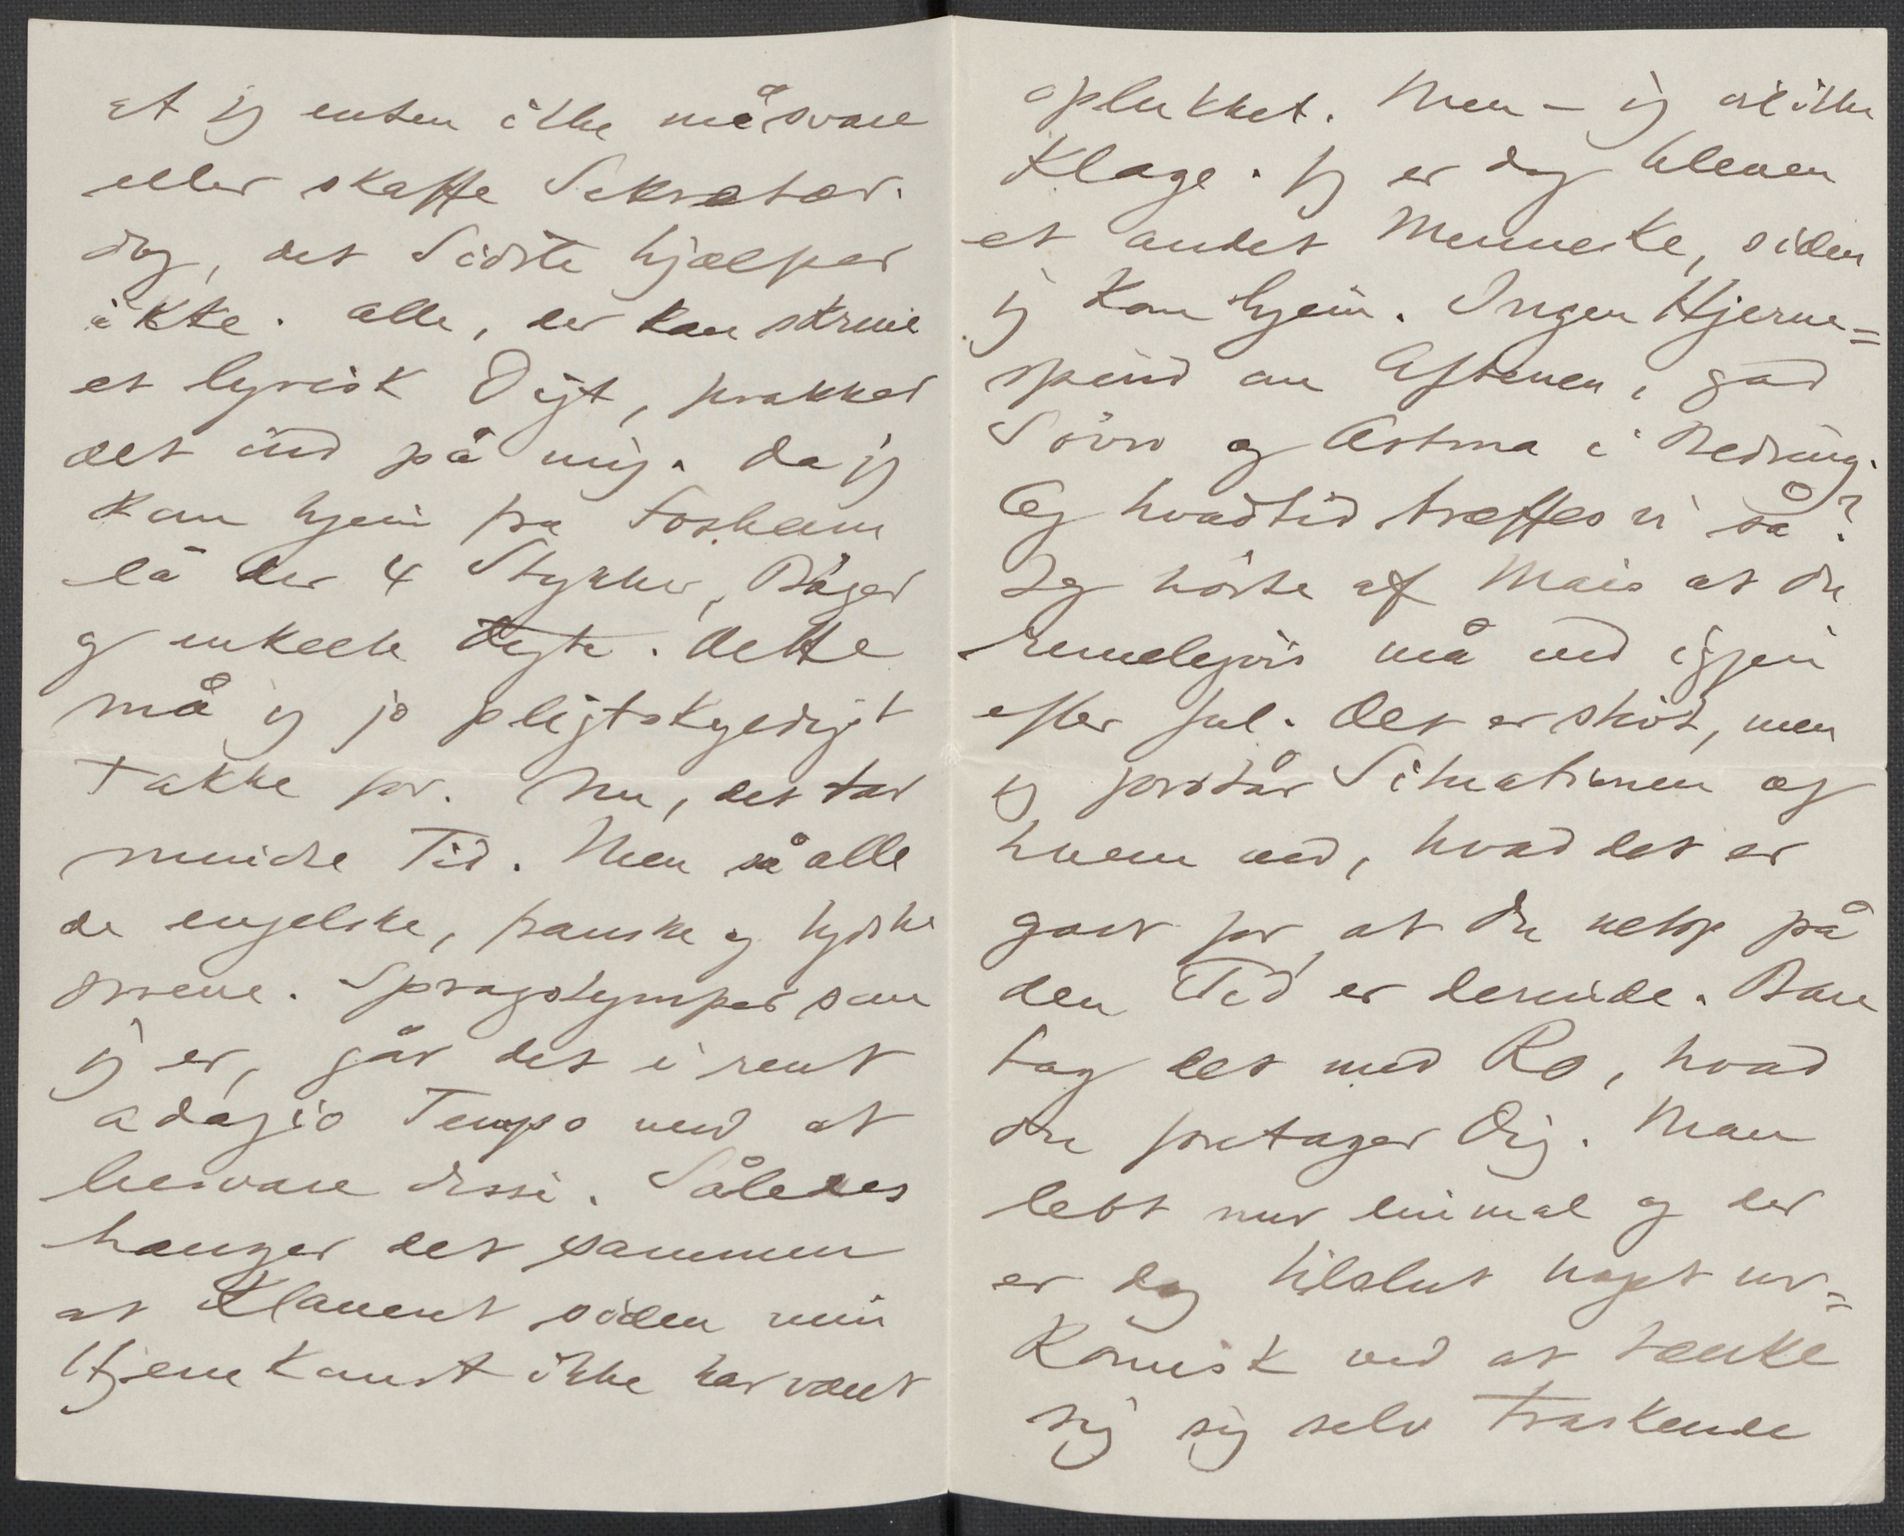 at jeg enten ikke må svare
eller skaffe Sekretær.
Dog, det Sidste hjælper
ikke. Alle, der kan skrive
et lyrisk Digt, prakker
det ind på mig. Da jeg
kom hjem fra Fosheim
lå der 4 Stykker, Bøger
og enkelte Digte. Dette
må jeg jo pligtskyldigt
takke for. Nu, det tar
mindre Tid. Men så alle
de engelske, franske og tydske
Brevene. Sprogstymper som
jeg er, går det i rent
adagio Tempo med at
besvare disse. Således
hænger det sammen
at Klaveret siden min
Hjemkomst ikke har været
oplukket. Men – jeg vil ikke
klage. Jeg er dog bleven
et andet Menneske, siden
jeg kom hjem. Ingen Hjerne=
spind om Aftenen, god
Søvn og Astma i Bedring.
Og hvadtid træffes vi så?
Jeg hörte af Mais at Du
rimeligvis må ned igjen
efter Jul. Det er stort, men
jeg forstår Situationen og
hvem ved, hvad det er
godt for, at Du netop på
den Tid er dernede. Bare
tag det med Ro, hvad
Du foretager Dig. Man
lebt nur einmal og der
er dog tilslut noget ur=
komisk ved at tænke
sig sig selv traskende